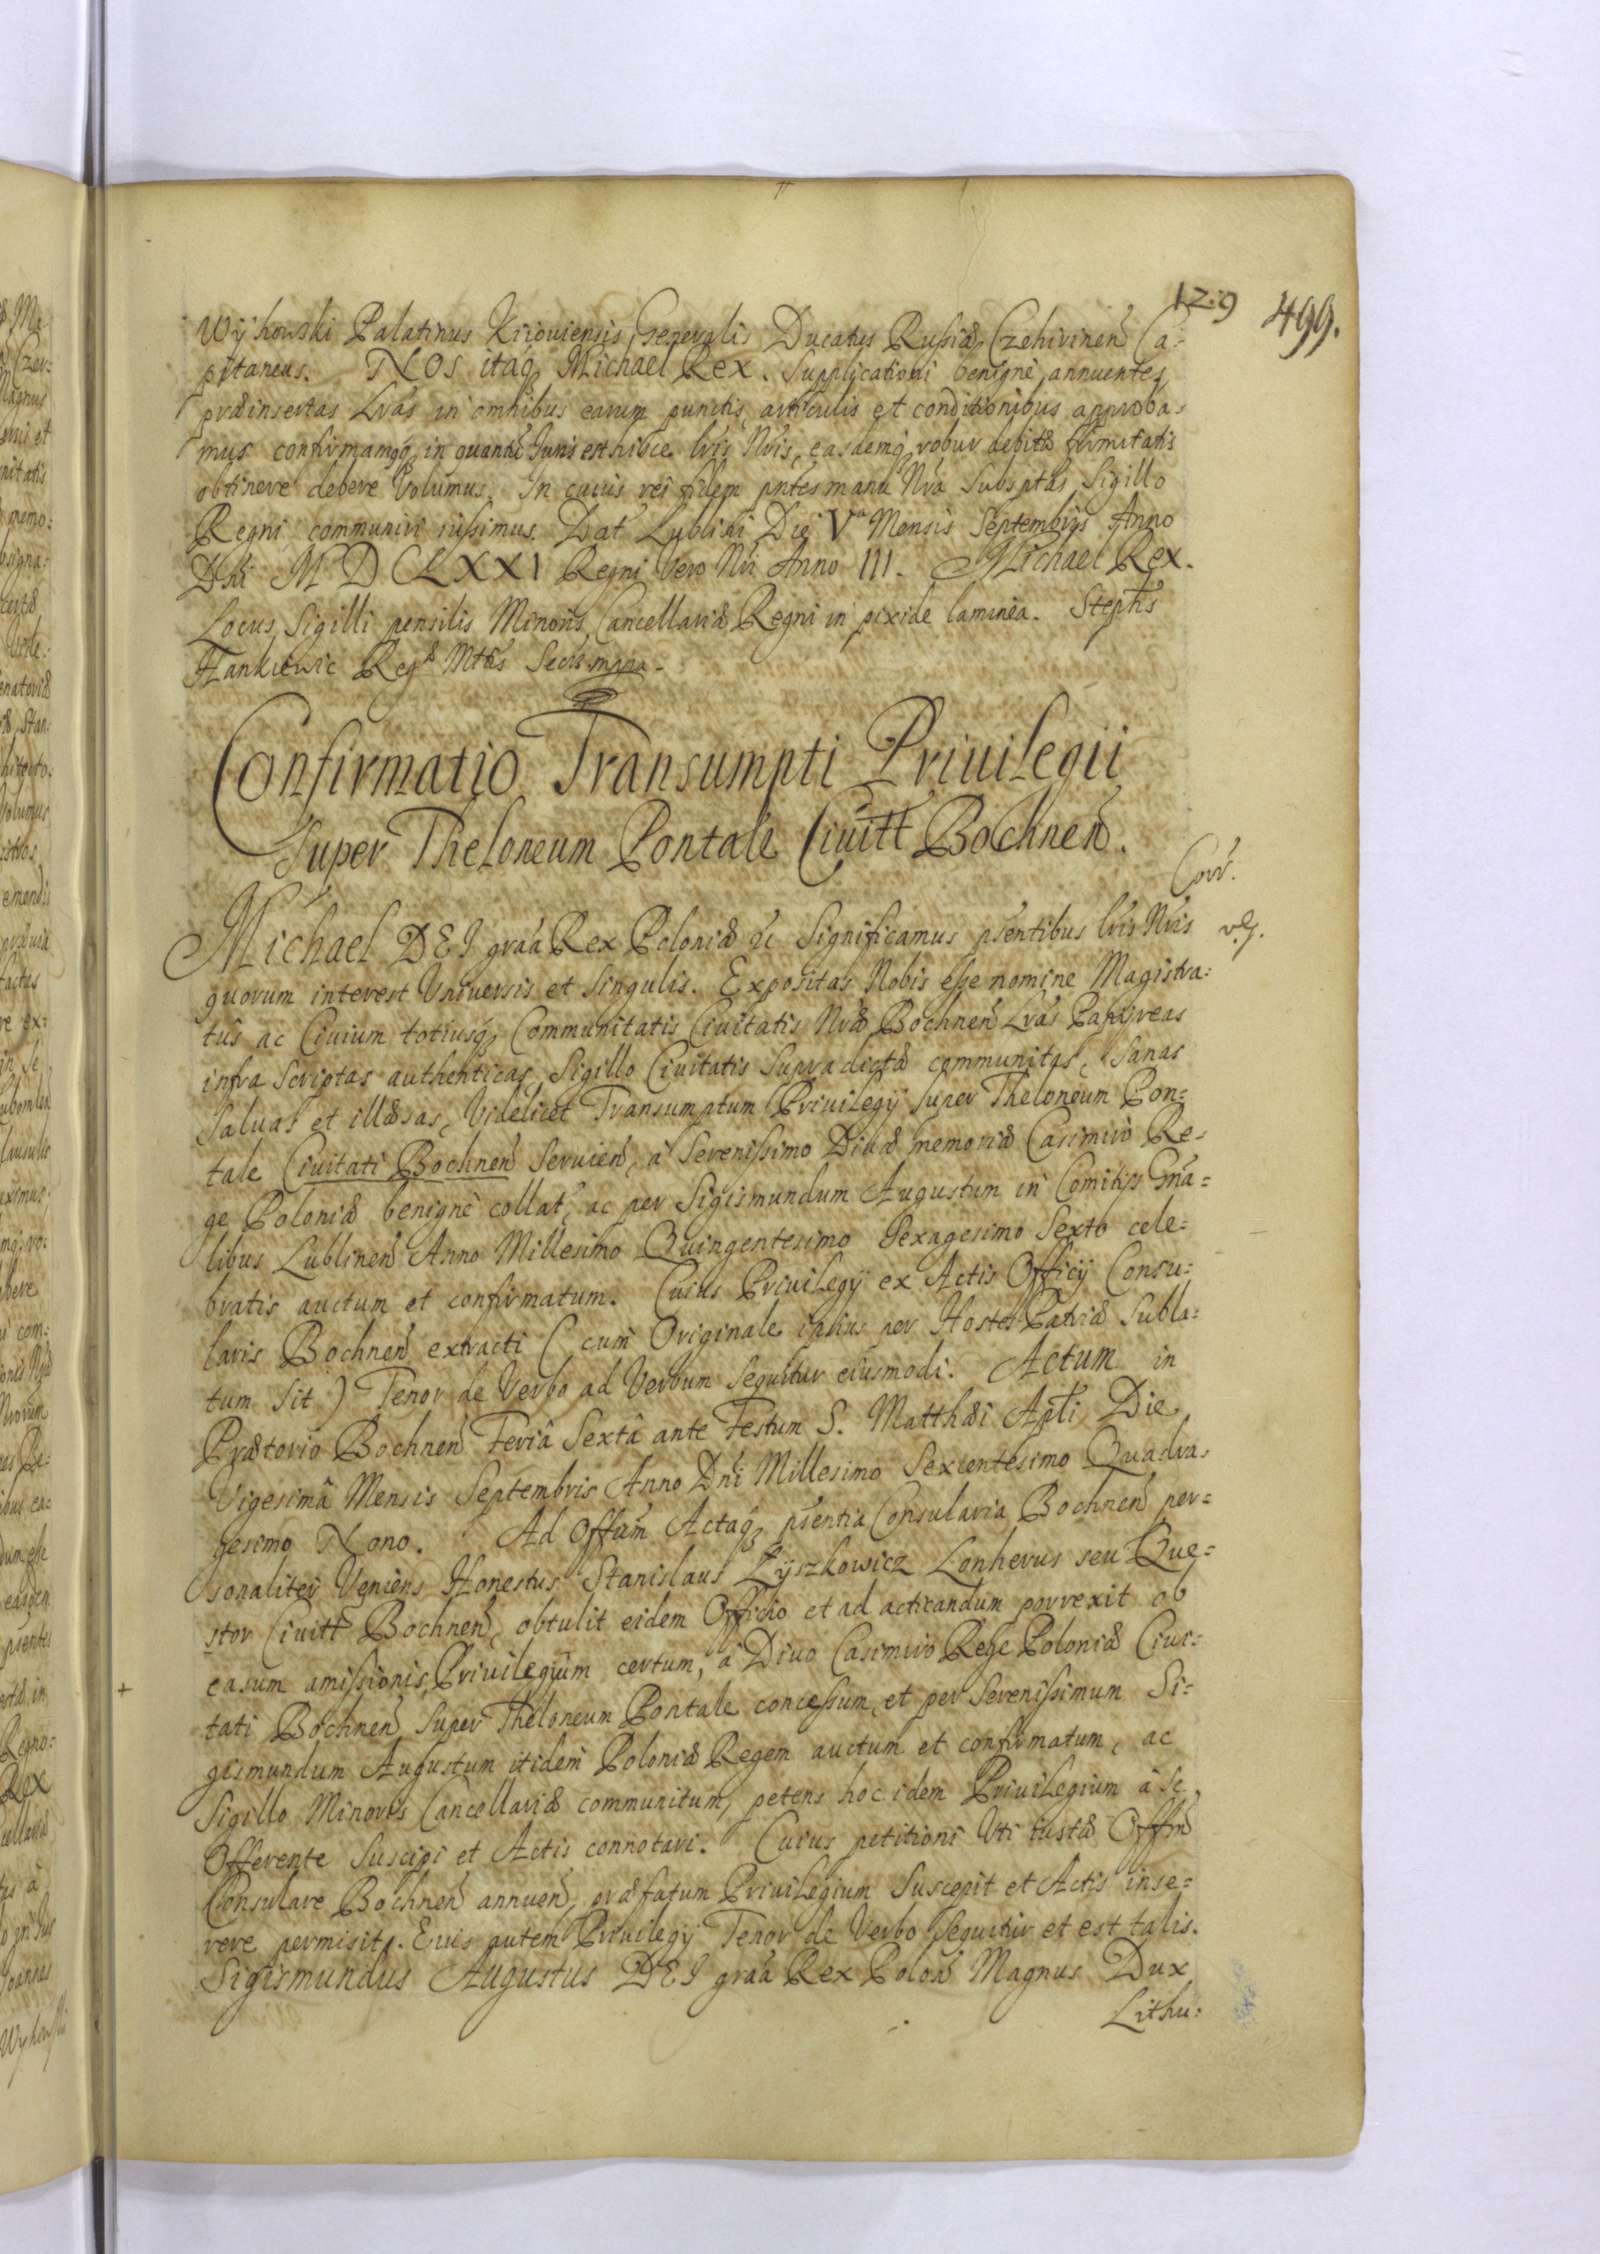 12.9 499.
Wyhowski Palatinus Kiiouiensis, Generalis Ducatus Russiæ, Czehirinen̄ Ca-
pitaneus. NOS itaq₃ Michael Rex. Supplicationi benignè annuentes,
præinsertas Lr̄as in omnibus earum punctis, articulis et conditionibus approba-
mus confirmamq₃, in quantū Iuris est hisce lr̄is Nr̄is, easdemq₃ robur debitæ firmitatis
obtinere debere Volumus. In cuius rei fidem pn̄tes manu Nr̄a Subsptas, Sigillo
Regni communiri iussimus. Dat Lublini Die Vᵃ Mensis Septembris Anno
Dn̄i MDCLXXI Regni Vero Nr̄i Anno III. Michael Rex.
Locus Sigilli pensilis Minoris Cancellariæ Regni in pixide laminea. Stepħs
Hankiewic Regᵃ Mtis Secris mpia.
Confirmatio Transumpti Priuilegii
Super Theloneum Pontale Ciuitt̄ Bochnen̄.
Corr.
Michael DEI gra̅a Rex Poloniæ &c Significamus pn̄tibus lr̄is Nr̄is
quorum interest Vniversis et Singulis. Expositas Nobis esse nomine Magistra-
tus ac Ciuium totiusq₃ Communitatis Ciuitatis Nr̄æ Bochnen̄ Lr̄as Papyreas
infra Scriptas authenticas, Sigillo Ciuitatis Supradictæ communitas, Sanas
Saluas et illæsas, Videlicet Transumptum Priuilegij Super Theloneum Pon-
tale Ciuitati Bochnen̄ Seruien̄, à Serenissimo Diuæ memoriæ Casimiro Re-
ge Poloniæ benignè collat̄, ac per Sigismundum Augustum in Comitijs Gn̄a-
libus Lublinen̄ Anno Millesimo Quingentesimo Sexagesimo Sexto cele-
bratis auctum et confirmatum. Cuius Priuilegij ex Actis Officij Consu-
laris Bochnen̄ extracti (cum Originale ipsius per Hostes Patriæ Subla-
tum Sit) Tenor de Verbo ad Verbum Sequitur eiusmodi. Actum in
Prætorio Bochnen̄ Feriâ Sextâ ante Festum S. Matthæi Apl̄i Die
Vigesimâ Mensis Septembris Anno Dn̄i Millesimo Sexcentesimo Quadra-
gesimo Nono. Ad Offum̄ Actaq₃ pn̄tia Consularia Bochnen̄ per-
sonaliter Veniens Honestus Stanislaus Lyszkowicz Lonherus seu Que-
stor Ciuitt̄ Bochnen̄, obtulit eidem Officio et ad acticandum porrexit ob
casum amissionis, Priuilegium certum, à Diuo Casimiro Rege Poloniæ Ciui-
tati Bochnen̄ Super Theloneum Pontale concessum, et per Serenissimum Si-
gismundum Augustum itidem Poloniæ Regem auctum et confirmatum, ac
Sigillo Minoris Cancellariæ communitum, petens hoc idem Priuilegium à Se
Offerente Suscipi et Actis connotari. Cuius petitioni Vti iustæ Offm̄
Consulare Bochnen̄ annuen̄, præfatum Priuilegium Suscepit et Actis inse-
rere permisit. Euis autem Priuilegij Tenor de Verbo Sequitur et est talis.
Sigismundus Augustus DEI gra̅a Rex Polon̄ Magnus Dux
Lithu-